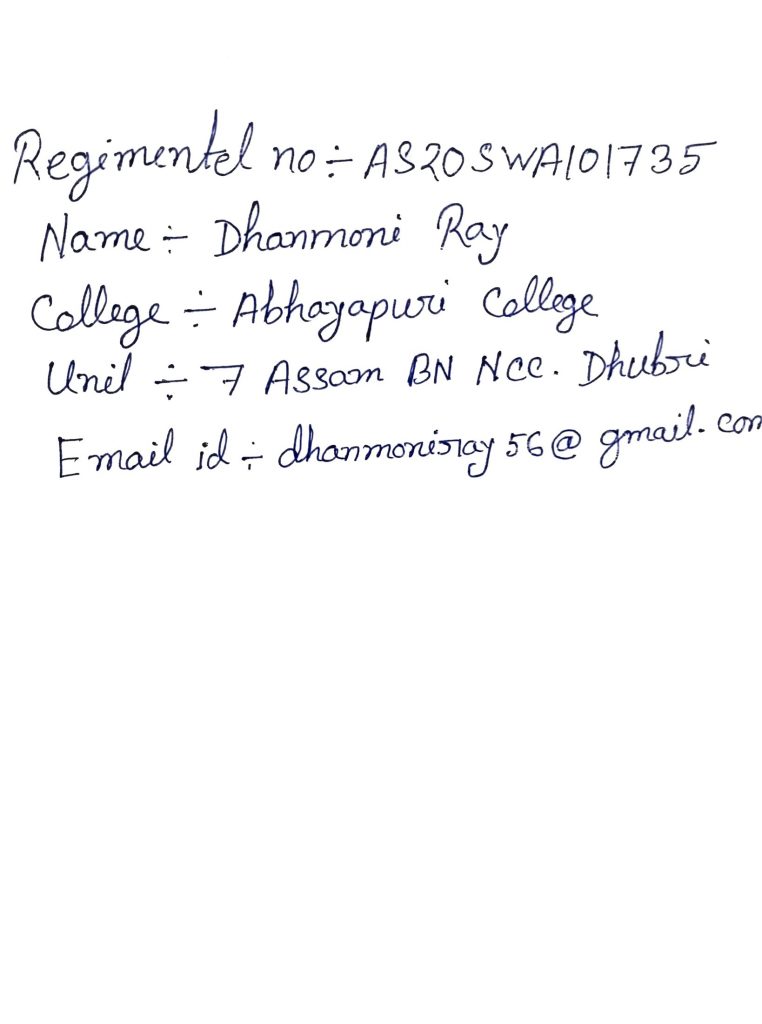 Regimentel no÷ AS20SWA101735
Name ÷ Dhanmoni Ray
College ÷ Abhayapuri College
Unit ÷ 7 Assam BN NCC. Dhubri
Email id ÷ dhanmoniray56@gmail.com